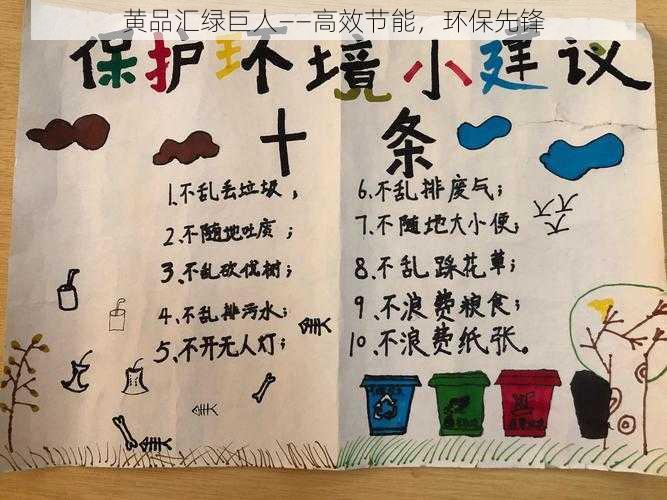 黄品汇绿巨人——高效节能，环保先锋
保护环境小建议
十条
1、不乱丢垃圾，
2、不随地吐质；
3、不乱砍伐树；
4、不乱排污水；
5、不开无人灯；
6、不乱排废气；
7、不随地大小便；
8、不乱踩花草；
9、不浪费粮食；
10、不浪费纸张。